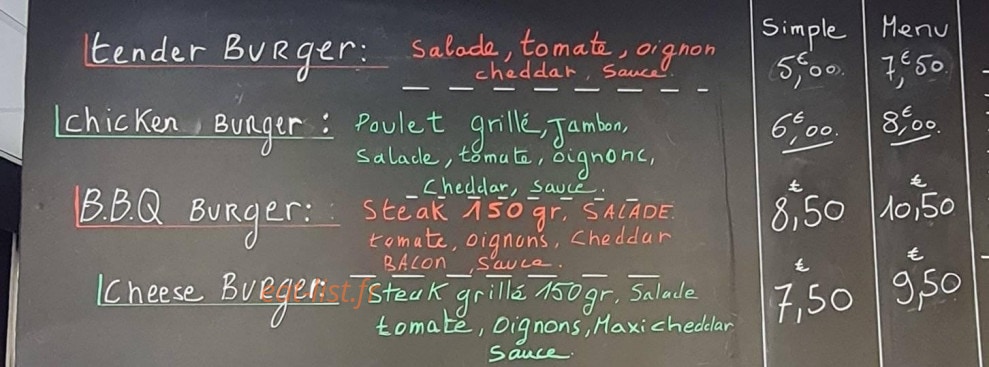 Simple Menu
tender BURger: Salade, tomate, oignon 5,€00. 7,€50
cheddar, sauce.
chicken Burger: Poulet grillé, Jambon, 6,€00. 8,€00.
Salade, tomate, oignonc,
Cheddar, sauce.
B.B.Q BURger: Steak 150 gr, SALADE. 8,50 € 10,50 €
tomate, oignons, Cheddar
BACON, Sauce.
Cheese Burger: Steak grillé 150 gr, Salade 7,50 € 9,50 €
tomate, Oignons, Maxi cheddar
Sauce.